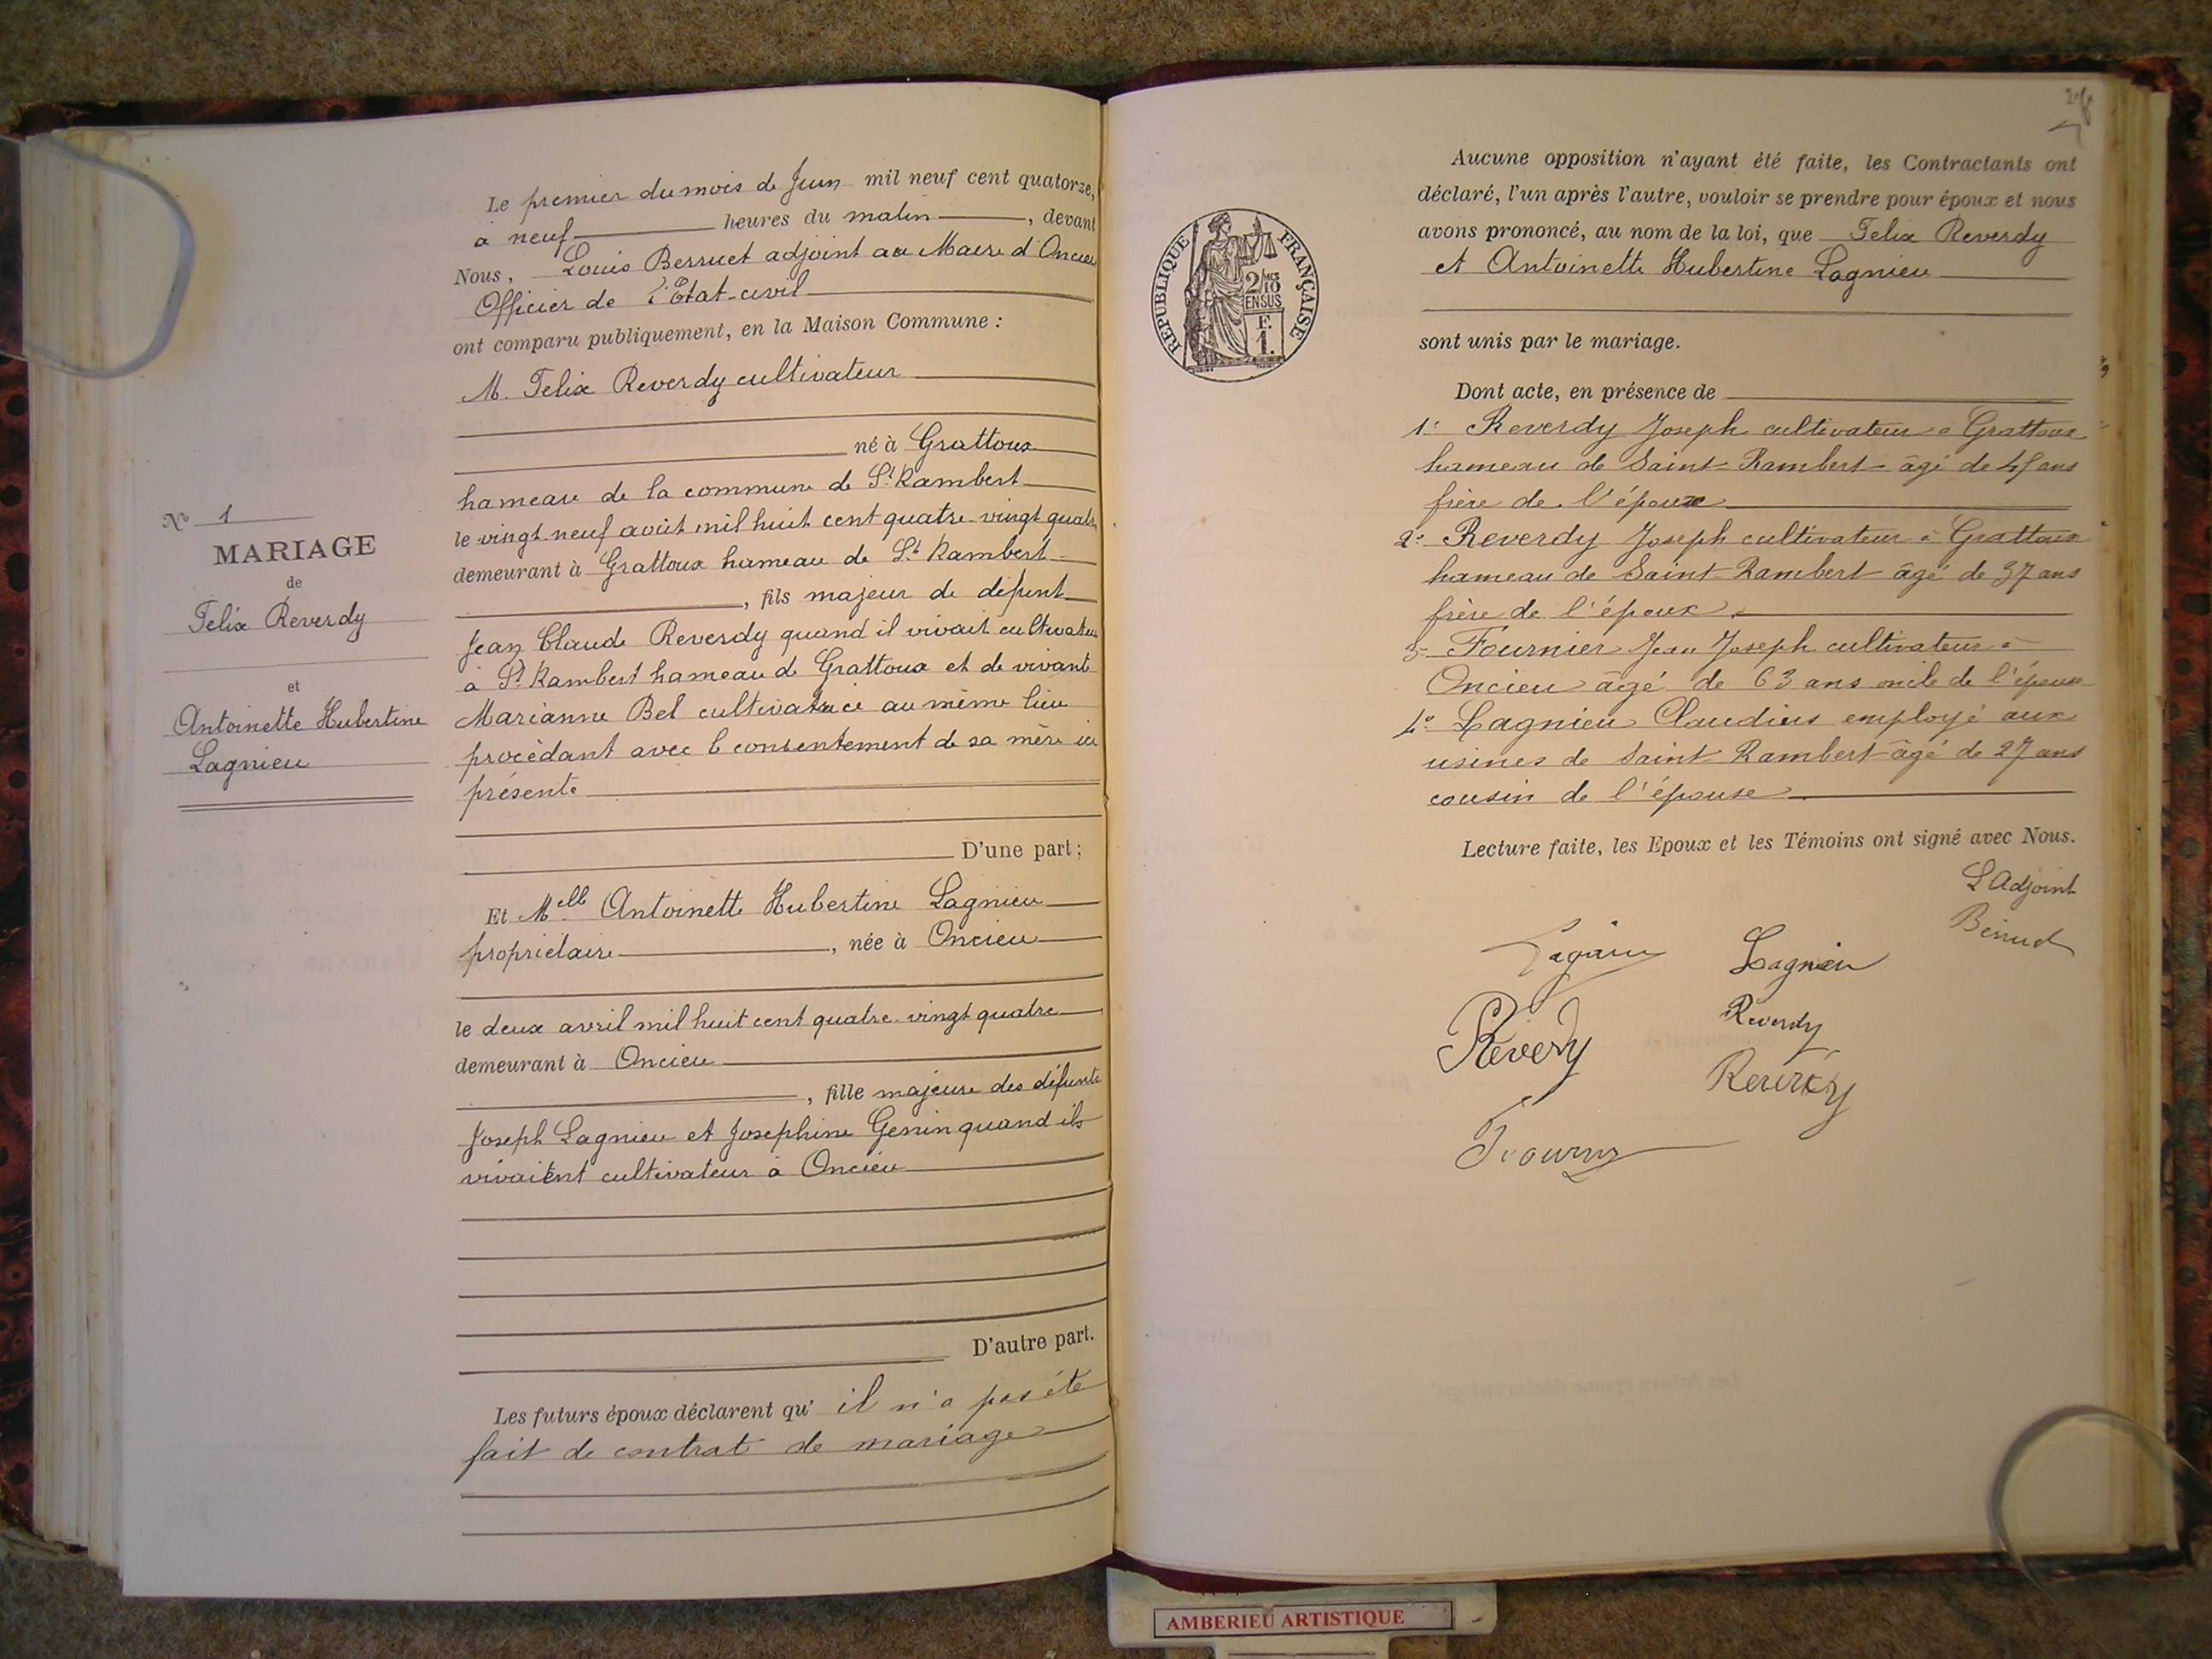 N° 1
MARIAGE
de
Felix Reverdy
et
Antoinette Hubertine
Lagnieu
Le premier du mois de Juin mil neuf cent quatorze,
à neuf heures du matin, devant
Nous, Louis Berrucet adjoint au Maire d'Oncieu
Officier de l'Etat-civil
ont comparu publiquement, en la Maison Commune :
M. Felix Reverdy cultivateur
né à Grattoux
hameau de la commune de St Rambert
le vingt-neuf août mil huit cent quatre-vingt quatre
demeurant à Grattoux hameau de St Rambert
, fils majeur de défunt
Jean Claude Reverdy quand il vivait cultivateur
à St Rambert hameau de Grattoux et de vivante
Marianne Bel cultivatrice au même lieu
procédant avec le consentement de sa mère ici
présente
D'une part;
Et Melle Antoinette Hubertine Lagnieu
propriétaire, née à Oncieu
le deux avril mil huit cent quatre-vingt quatre
demeurant à Oncieu
, fille majeure des défunts
Joseph Lagnieu et Josephine Genin quand ils
vivaient cultivateur à Oncieu
D'autre part.
Les futurs époux déclarent qu' il n'a pas été
fait de contrat de mariage
REPUBLIQUE FRANÇAISE
2/10 MES
EN SUS
F.
1.
Aucune opposition n'ayant été faite, les Contractants ont
déclaré, l'un après l'autre, vouloir se prendre pour époux et nous
avons prononcé, au nom de la loi, que Felix Reverdy
et Antoinette Hubertine Lagnieu
sont unis par le mariage.
Dont acte, en présence de
1° Reverdy Joseph cultivateur à Grattoux
hameau de Saint-Rambert âgé de ans
frère de l'époux
2° Reverdy Joseph cultivateur à Grattoux
hameau de Saint-Rambert âgé de 37 ans
frère de l'époux
3° Fournier Jean Joseph cultivateur à
Oncieu âgé de 63 ans oncle de l'épouse
4° Lagnieu Claudius employé aux
usines de Saint Rambert âgé de 27 ans
cousin de l'épouse
Lecture faite, les Epoux et les Témoins ont signé avec Nous.
L'Adjoint
Lagnieu
Reverdy
Revery
Reverdy
AMBERIEU ARTISTIQUE